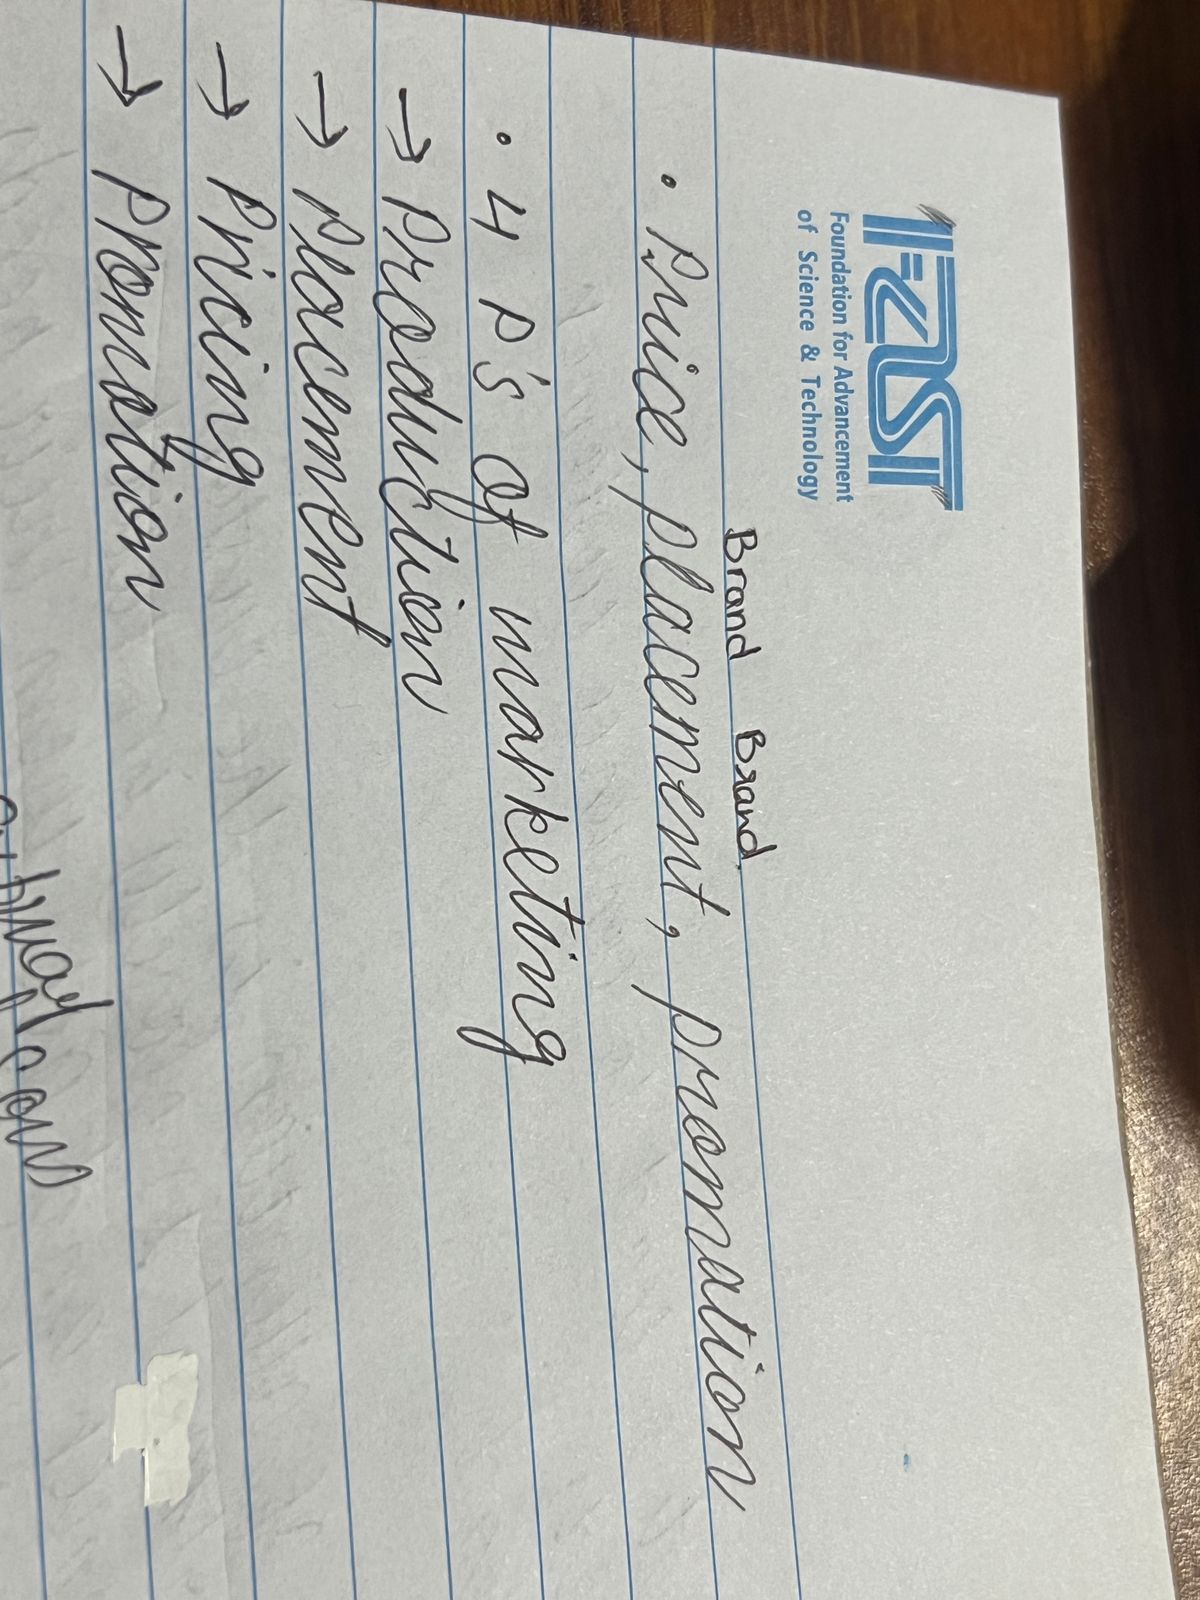 FAST
Foundation for Advancement
of Science & Technology
Brand Brand.
• Price, placement, promation
• 4 P's of marketing
→ Production
→ Placement
→ Pricing
→ Promotion